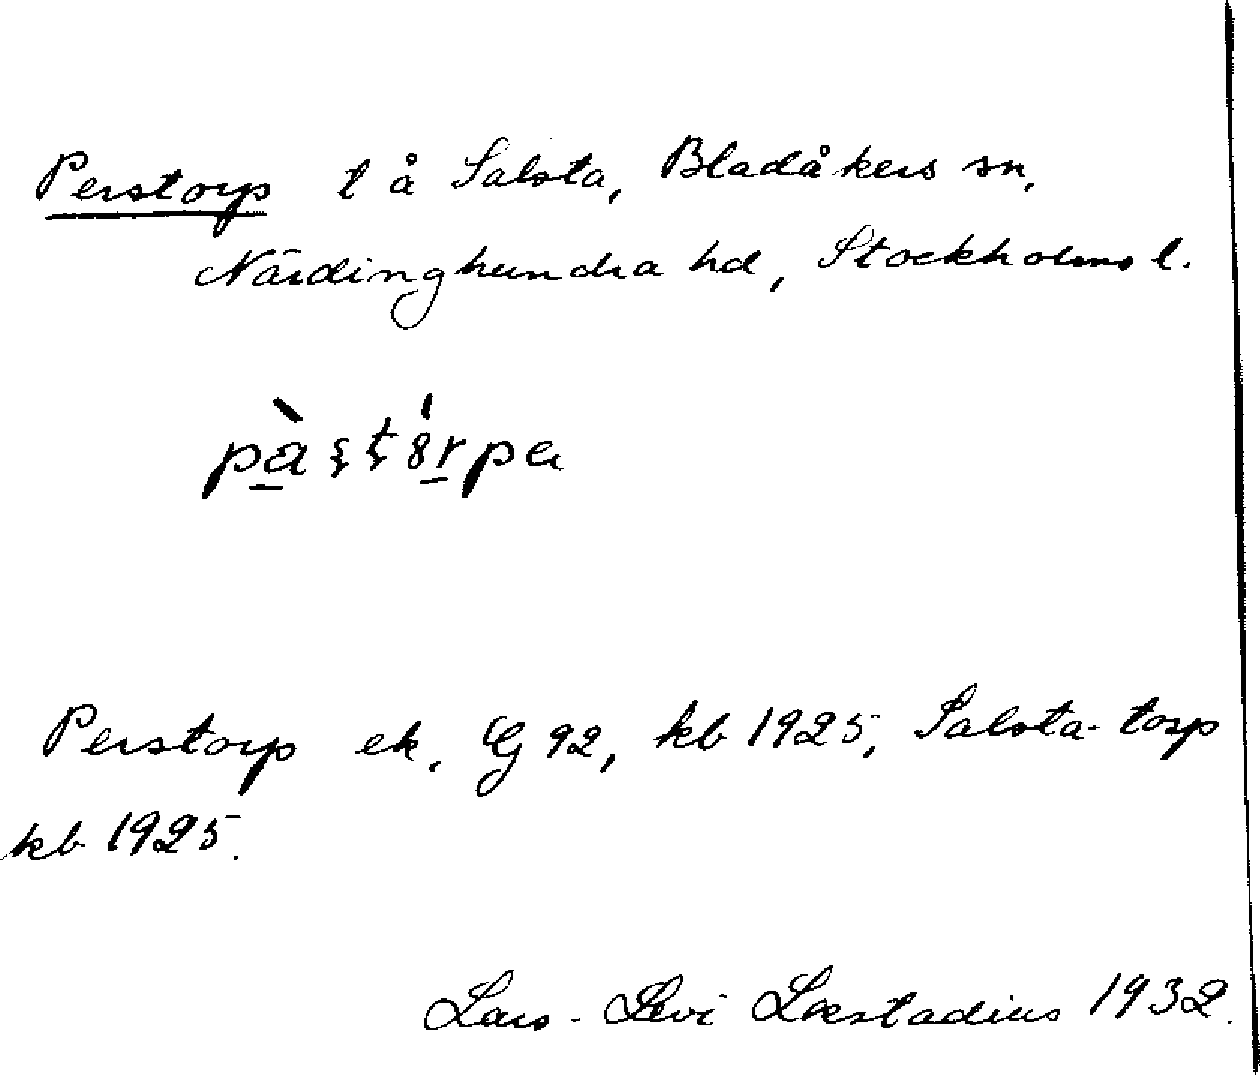 Perstorp t å Salsta, Bladåkers sn,
Närdinghundra hd, Stockholms l.
Perstorp ek. G 92, kb 1925, Salsta-torp
kb 1925.
Lars-Levi Læstadius 1932.